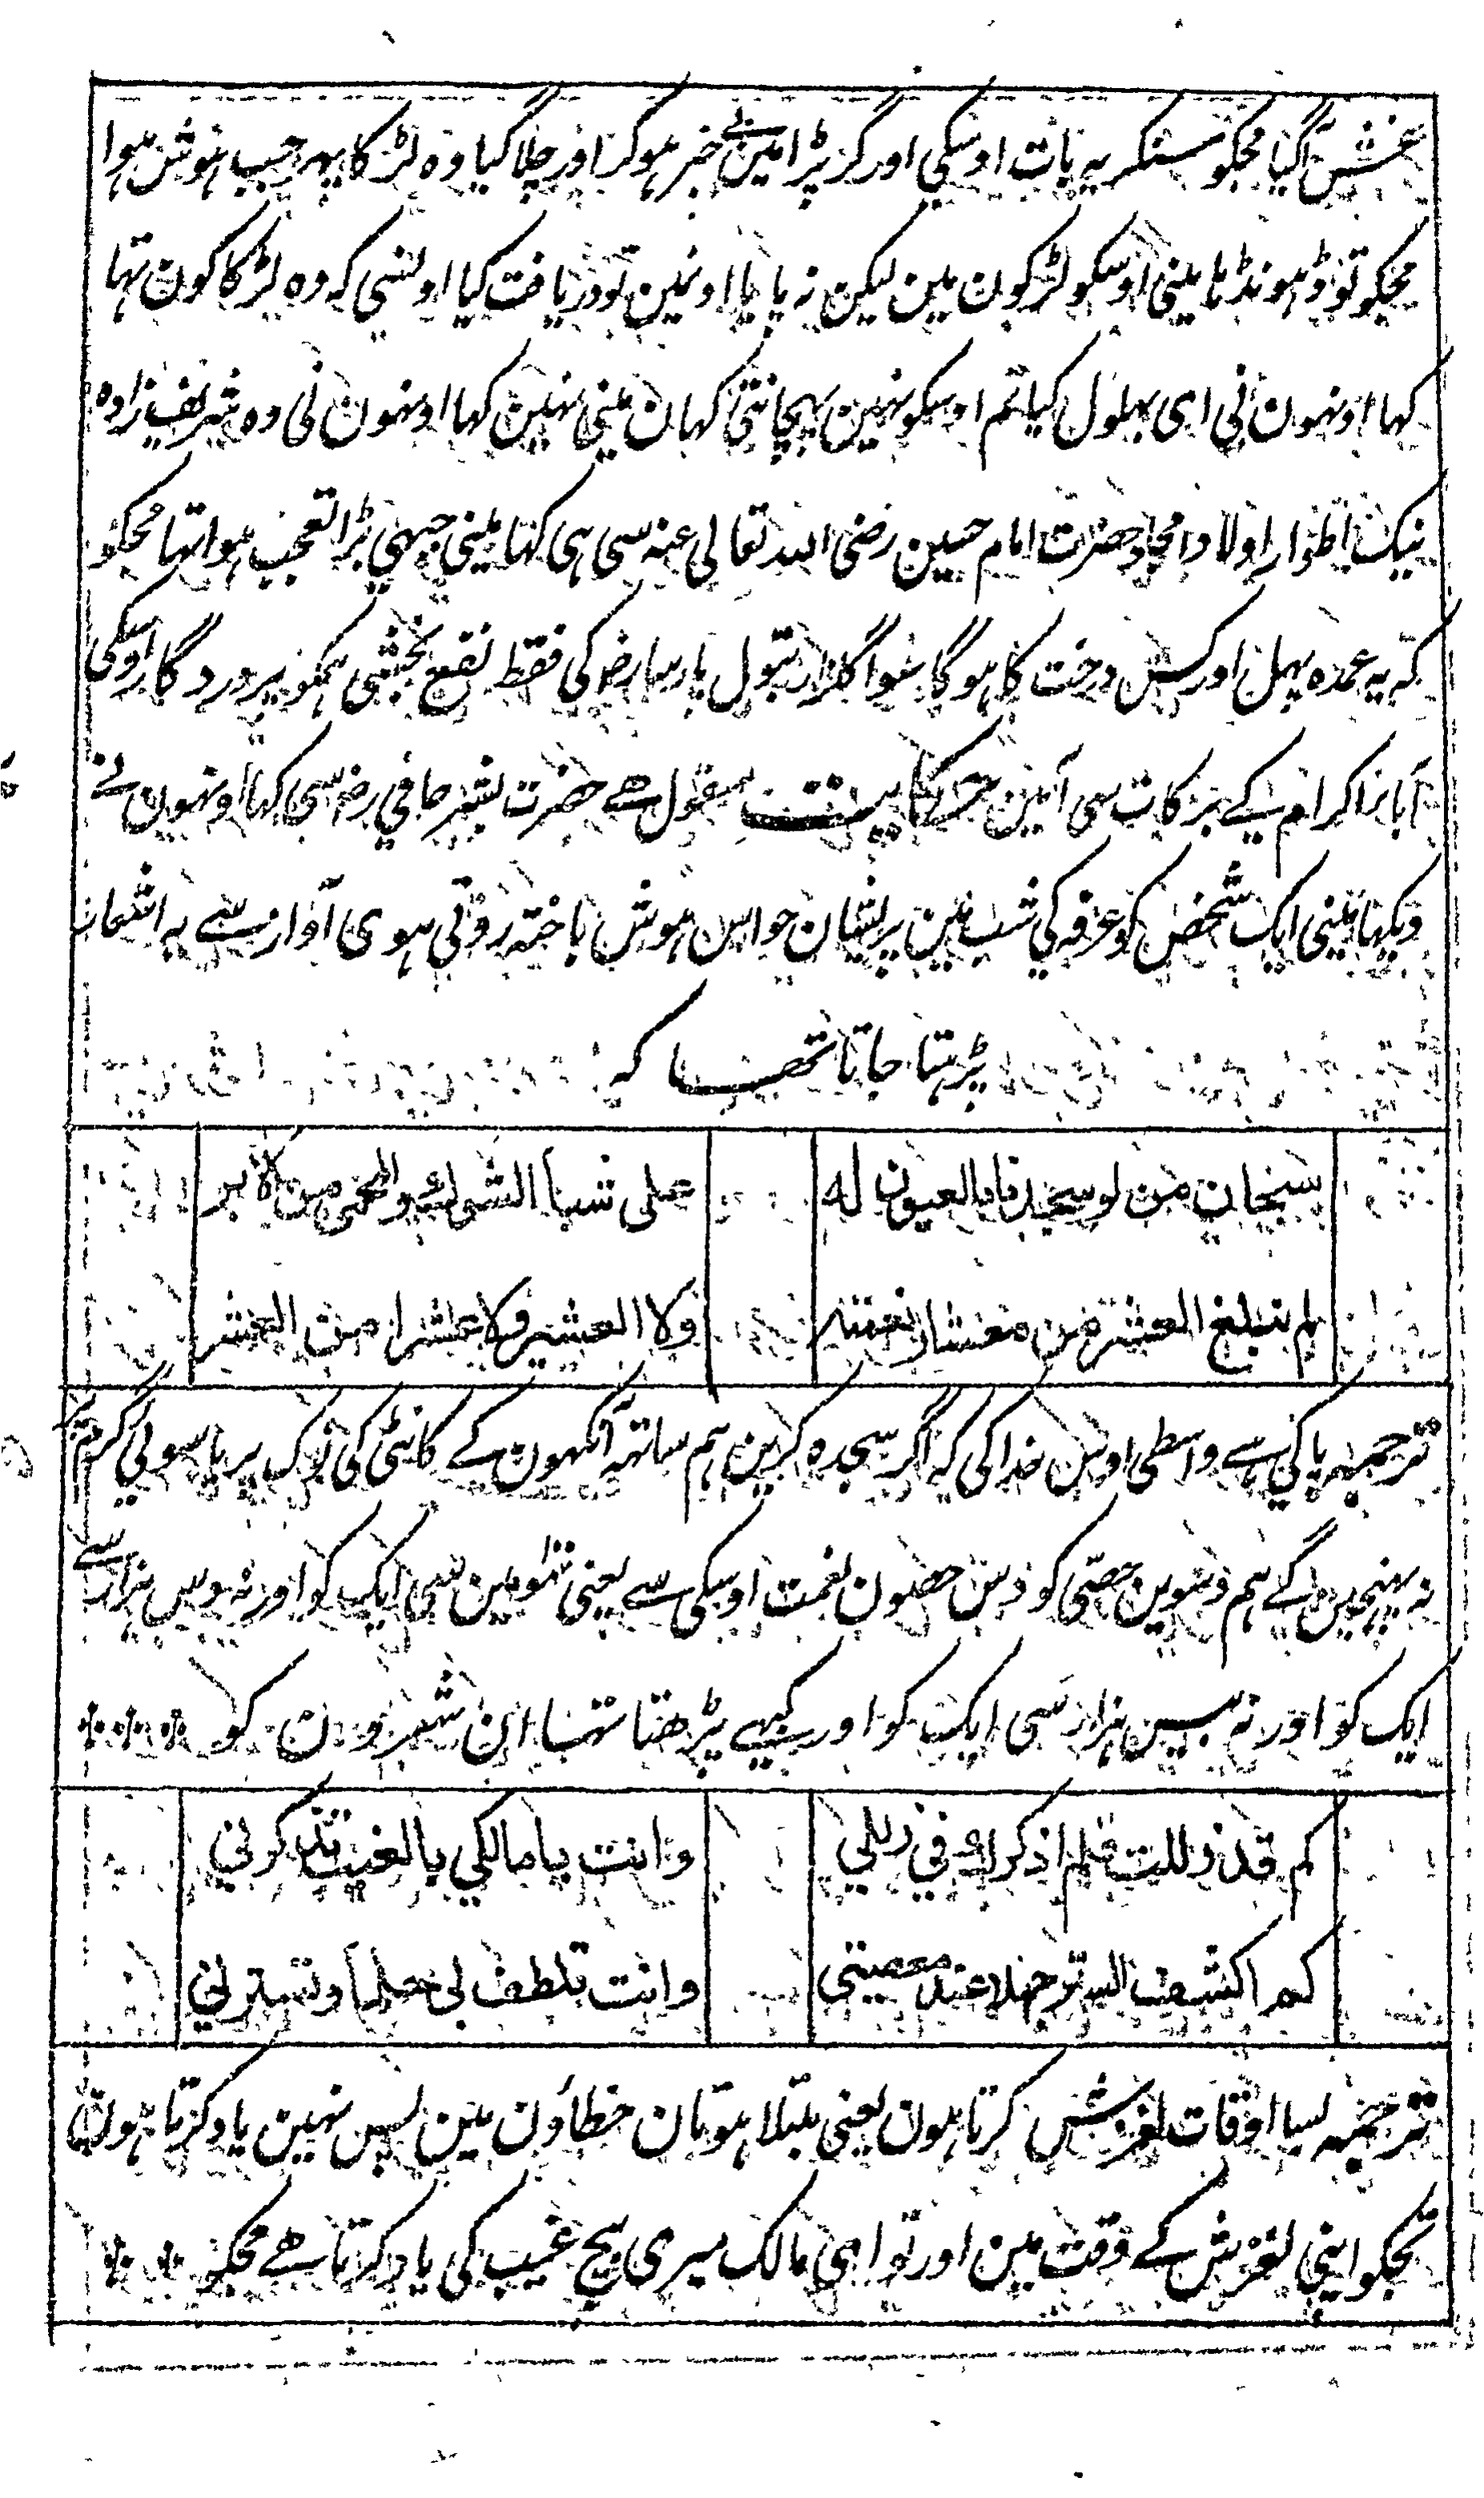 غش آگیا مجکو سنکر یہ بات اوسکی اور گر پڑا مین بے خبر ہوکر اور چلا گیا وہ لڑکا پھر جب ہوش ہوا
مجکو تو ڈہونڈہا مینی اوسکو لڑکون مین لیکن نہ پایا اونین تو دریافت کیا اونسی کہ وہ لڑکا کون تہا
کہا اونہون نی ای بہلول کیا تم اوسکو نہین پہچانتی کہا ن مینی نہین کہا اونہون نی وہ شریف زادہ
نیک اطوار اولاد امجاد حضرت امام حسین رضی اللہ تعالی عنہ سی ہی کہا مینی جبہی بڑا تعجب ہوا تہا مجکو
کہ یہ عمدہ پہل اور کس درخت کا ہوگا سوا گلزار بتول پارسا رض کی فقط نفع بخشی ہمکو پروردگار اوسکی
آباء کرام کے برکات سی آمین حکایت منقول ھے حضرت بشر حافی رض سی کہا اونہون نے
دیکہا مینی ایک شخص کو عرفہ کی شب مین پریشان حواس ہوش باختہ روتی ہوی آواز سے یہ اشعار
پڑہتا جاتا تھا کہ
سبحان من لو سجدنا بالعیون له
علی شبا الشوک والمحمی من الابر
لم نبلغ العشر من معشار نعمته
ولا العشیر ولا عشرا من العشر
ترجمہ پاکی ہے واسطی اوس خدا کی کہ اگر سجدہ کرین ہم ساتہ آنکہون کے کانٹی کی نوک پر یا سوئی گرم پر
نہ پہنچین گے ہم دسوین حصی کو دس حصون نعمت اوسکی سے یعنی سَومین سی ایک کو اور نہ دس ہزار سے
ایک کو اور نہ بیس ہزار سی ایک کو اور کبہے پڑھتا تہا ان شعرون کو
کم قد زللت فلم اذکرک فی زللی
وانت یا مالکی بالغیب تذکرنی
کم اکشف الستر جهلا عند معصیتی
وانت تلطف لی حلما وتسترنی
ترجمہ بسا اوقات لغزش کرتا ہون یعنی مبتلا ہوتا ن خطاؤن مین پس نہین یاد کرتا ہون
تجکو اپنی لغزش کے وقت مین اور تو ای مالک میری بیچ غیب کی یاد کرتا ھے مجکو